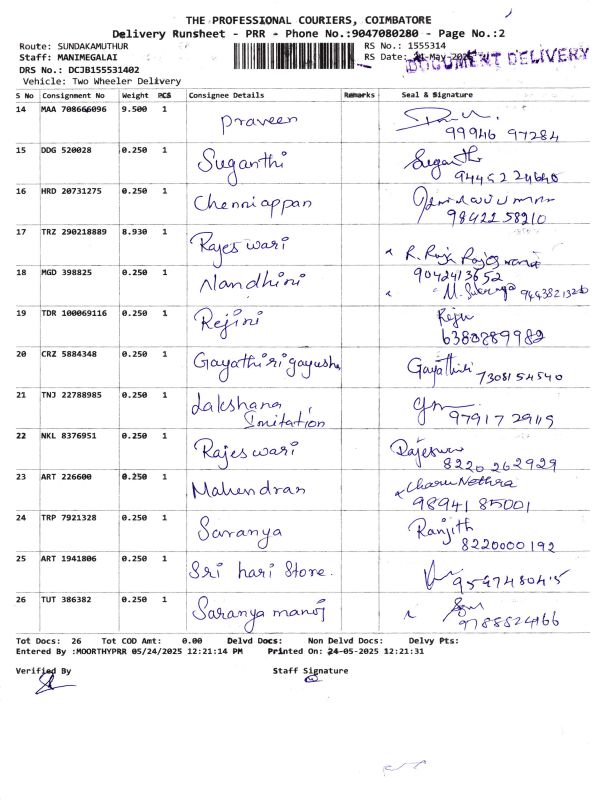 THE PROFESSIONAL COURIERS, COIMBATORE
Delivery Runsheet - PRR - Phone No.:9047080280 - Page No.:2
Route: SUNDAKAMUTHUR RS No.: 1555314
Staff: MANIMEGALAI RS Date: -May-202 DOCUMENT DELIVERY
DRS No.: DCJB155531402
Vehicle: Two Wheeler Delivery
S No Consignment No Weight PCS Consignee Details Remarks Seal & Signature
14 MAA 708666096 9.500 1 Praveen
99946 97284
15 DDG 520028 0.250 1 Suganthi Suganthi
16 HRD 20731275 0.250 1 Chenniappan
98422 58210
17 TRZ 290218889 8.930 1 Rajeswari
9042413652
18 MGD 398825 0.250 1 Nandhini
19 TDR 100069116 0.250 1 Rejini Reju
6380289982
20 CRZ 5884348 0.250 1 Gayathirigayusha Gayathiri 7308154540
21 TNJ 22788985 0.250 1 Lakshana
Imitation 97917 29119
22 NKL 8376951 0.250 1 Rajeswari Rajeswari
8220262929
23 ART 226600 0.250 1 Mahendran x Charu Nethra
98941 85001
24 TRP 7921328 0.250 1 Saranya Ranjith
8220000192
25 ART 1941806 0.250 1 Sri hari Store.
9597480415
26 TUT 386382 0.250 1 Saranya manoj
9788824166
Tot Docs: 26 Tot COD Amt: 0.00 Delvd Docs: Non Delvd Docs: Delvy Pts:
Entered By :MOORTHYPRR 05/24/2025 12:21:14 PM Printed On: 24-05-2025 12:21:31
Verified By Staff Signature